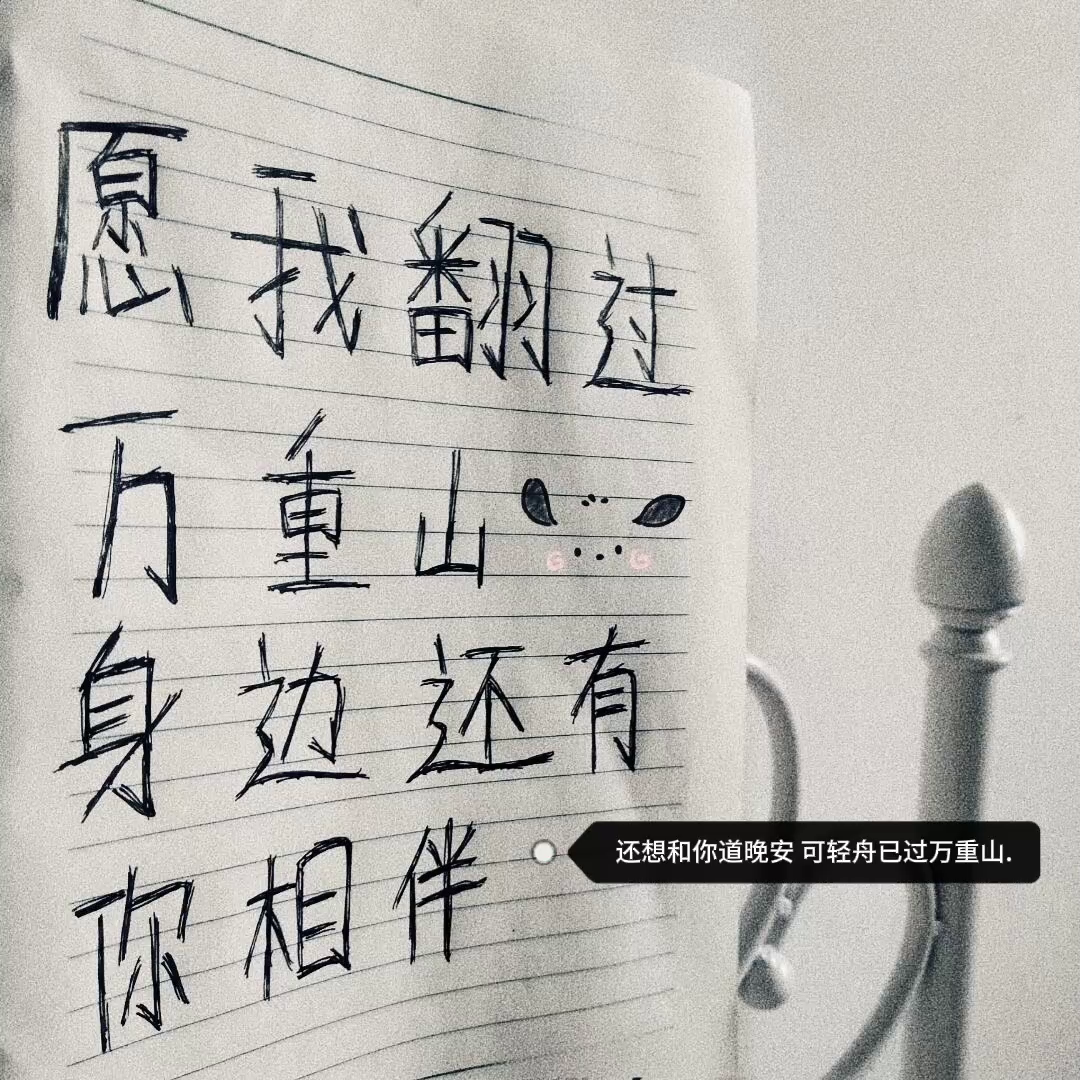 愿我翻过
万重山
身边还有
你相伴
还想和你道晚安 可轻舟已过万重山.